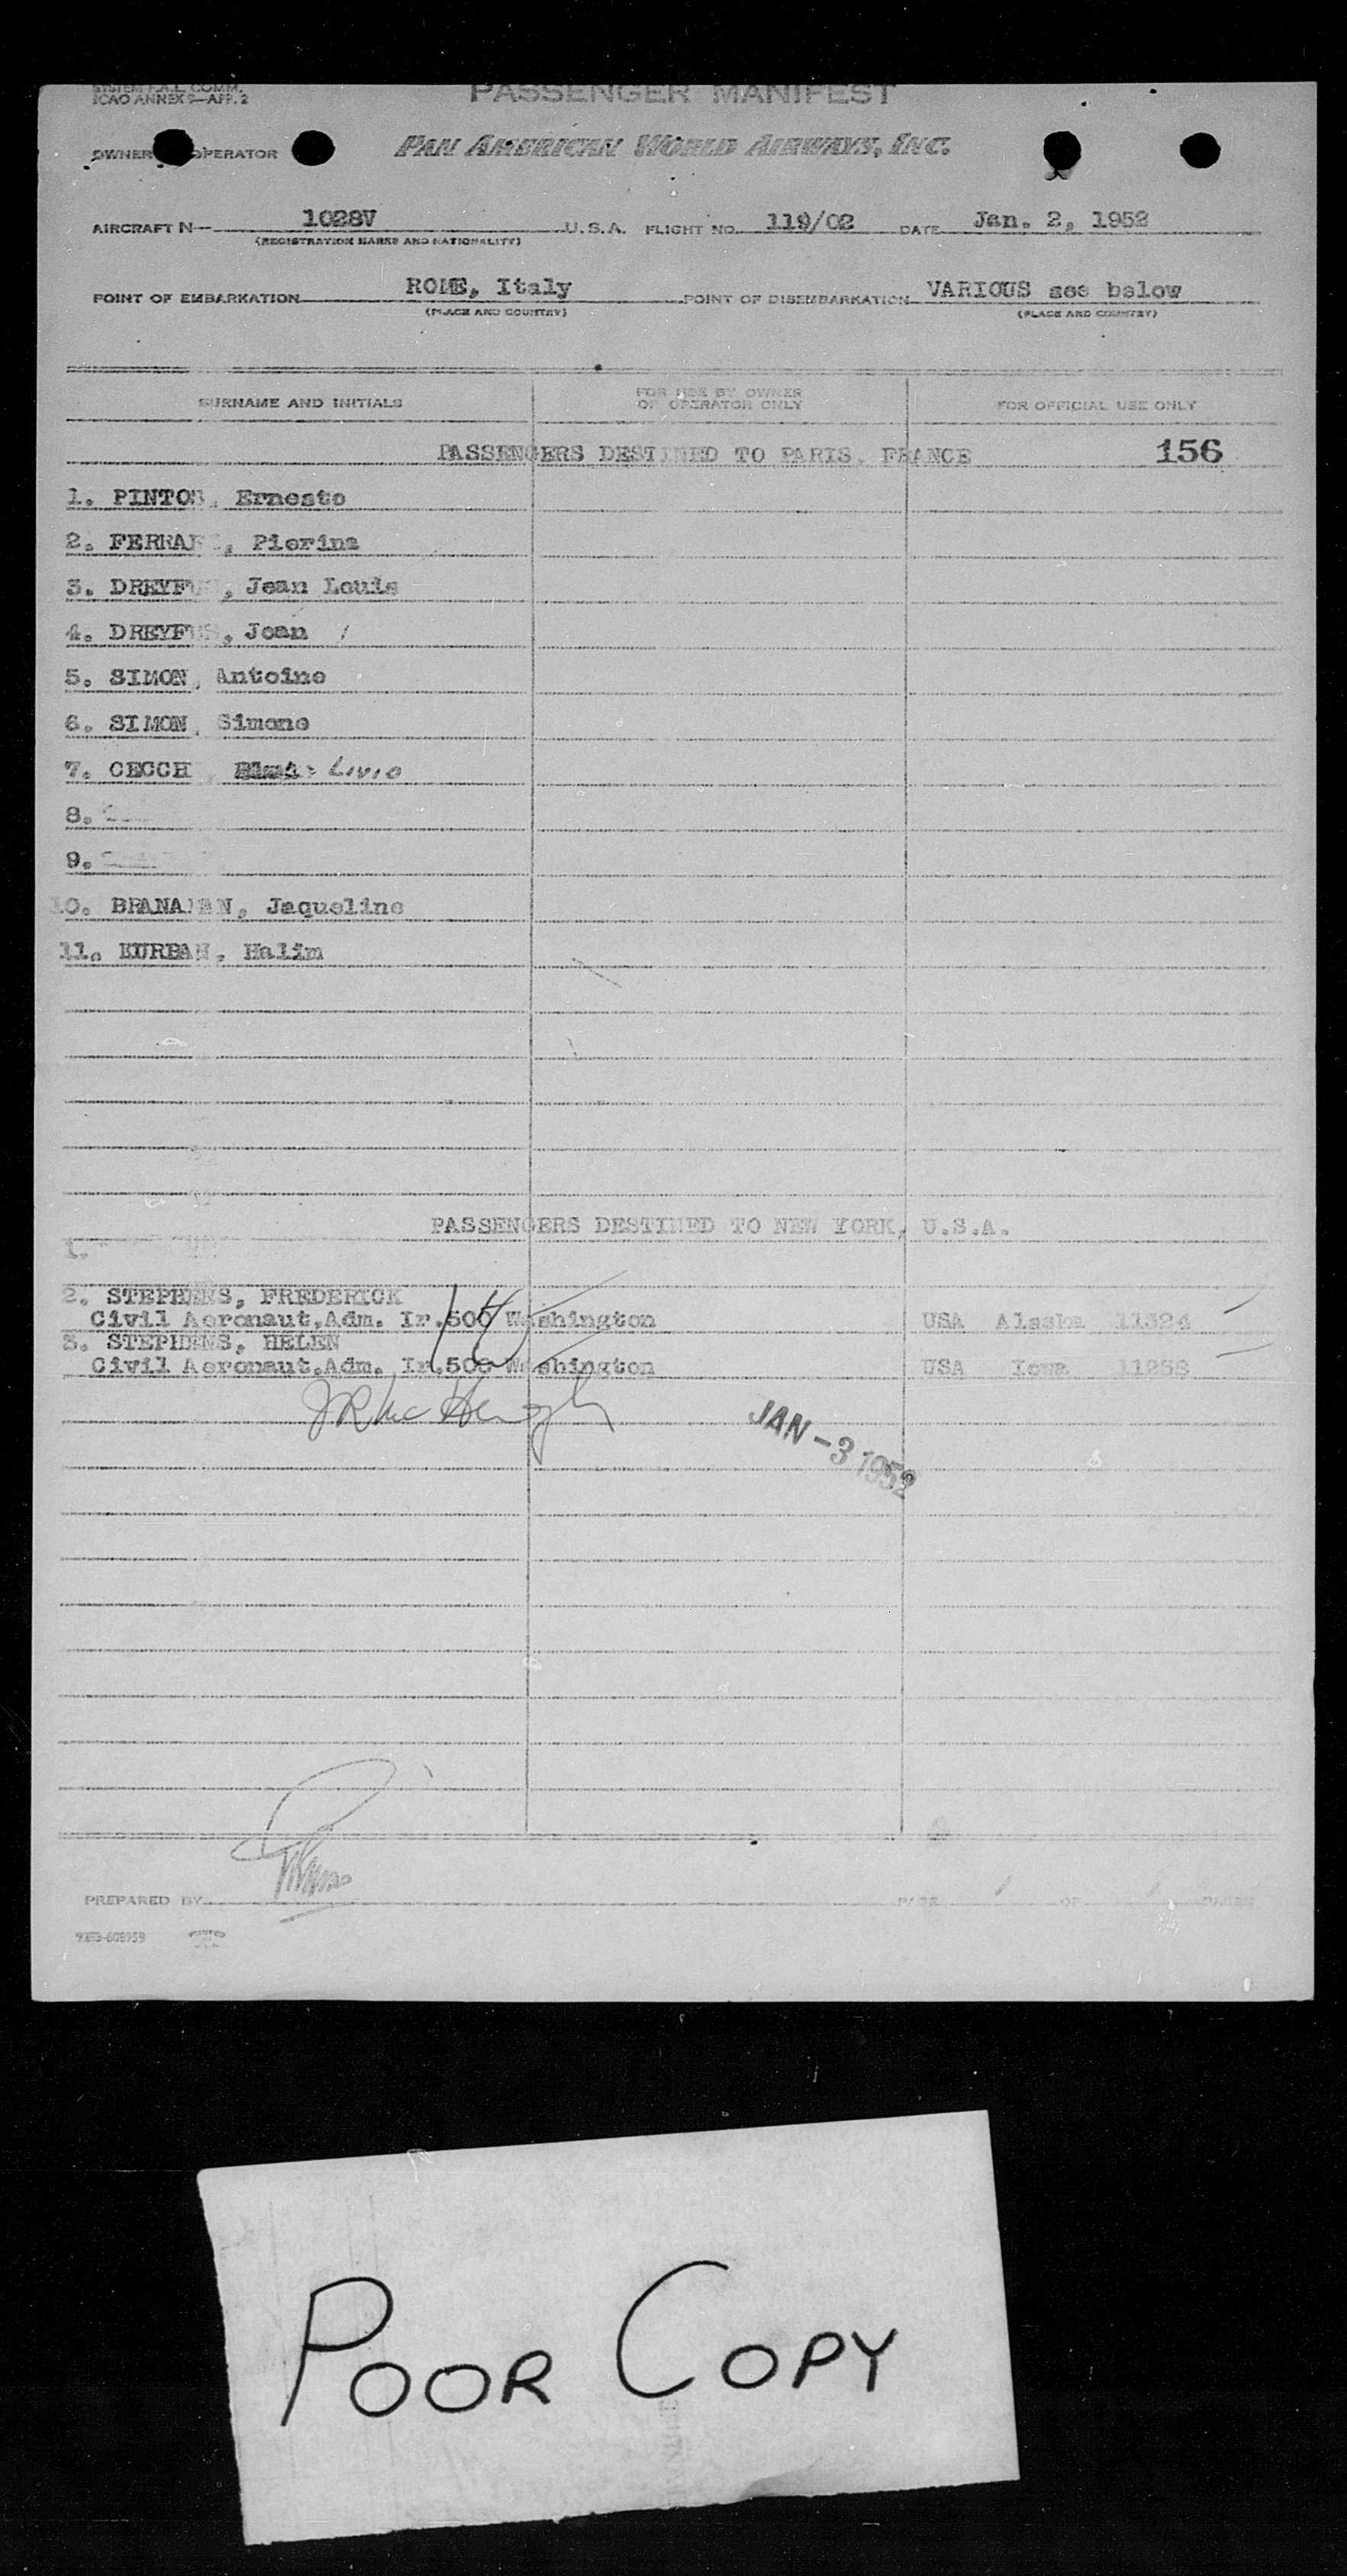 SYSTEM F.A.L. COMM.
ICAO ANNEX 9—APP. 2
PASSENGER MANIFEST
OWNER OPERATOR PAN AMERICAN WORLD AIRWAYS, INC.
AIRCRAFT N— 1028V U.S.A. FLIGHT NO. 119/02 DATE Jan. 2, 1952
(REGISTRATION MARKS AND NATIONALITY)
POINT OF EMBARKATION ROME, Italy POINT OF DISEMBARKATION VARIOUS see below
(PLACE AND COUNTRY) (PLACE AND COUNTRY)
SURNAME AND INITIALS FOR USE BY OWNER OR OPERATOR ONLY FOR OFFICIAL USE ONLY
PASSENGERS DESTINED TO PARIS, FRANCE 156
1. PINTOS, Ernesto
2. , Pierina
3. DREYFUS, Jean Louis
4. DREYFUS, Joan
5. SIMON, Antoine
6. SIMON, Simone
7. CECCH , Livio
8.
9.
10. Jaqueline
11. KURBAN, Halim
PASSENGERS DESTINED TO NEW YORK, U.S.A.
1.
2. STEPHENS, FREDERICK
Civil Aeronaut.Adm. Ir.500 Washington USA Alaska 11324
3. STEPHENS, HELEN
Civil Aeronaut.Adm. Ir.500 Washington USA Iowa 11258
JAN -3 1952
PREPARED BY PAGE 1 OF 1 PAGES
PRINTED
POOR COPY